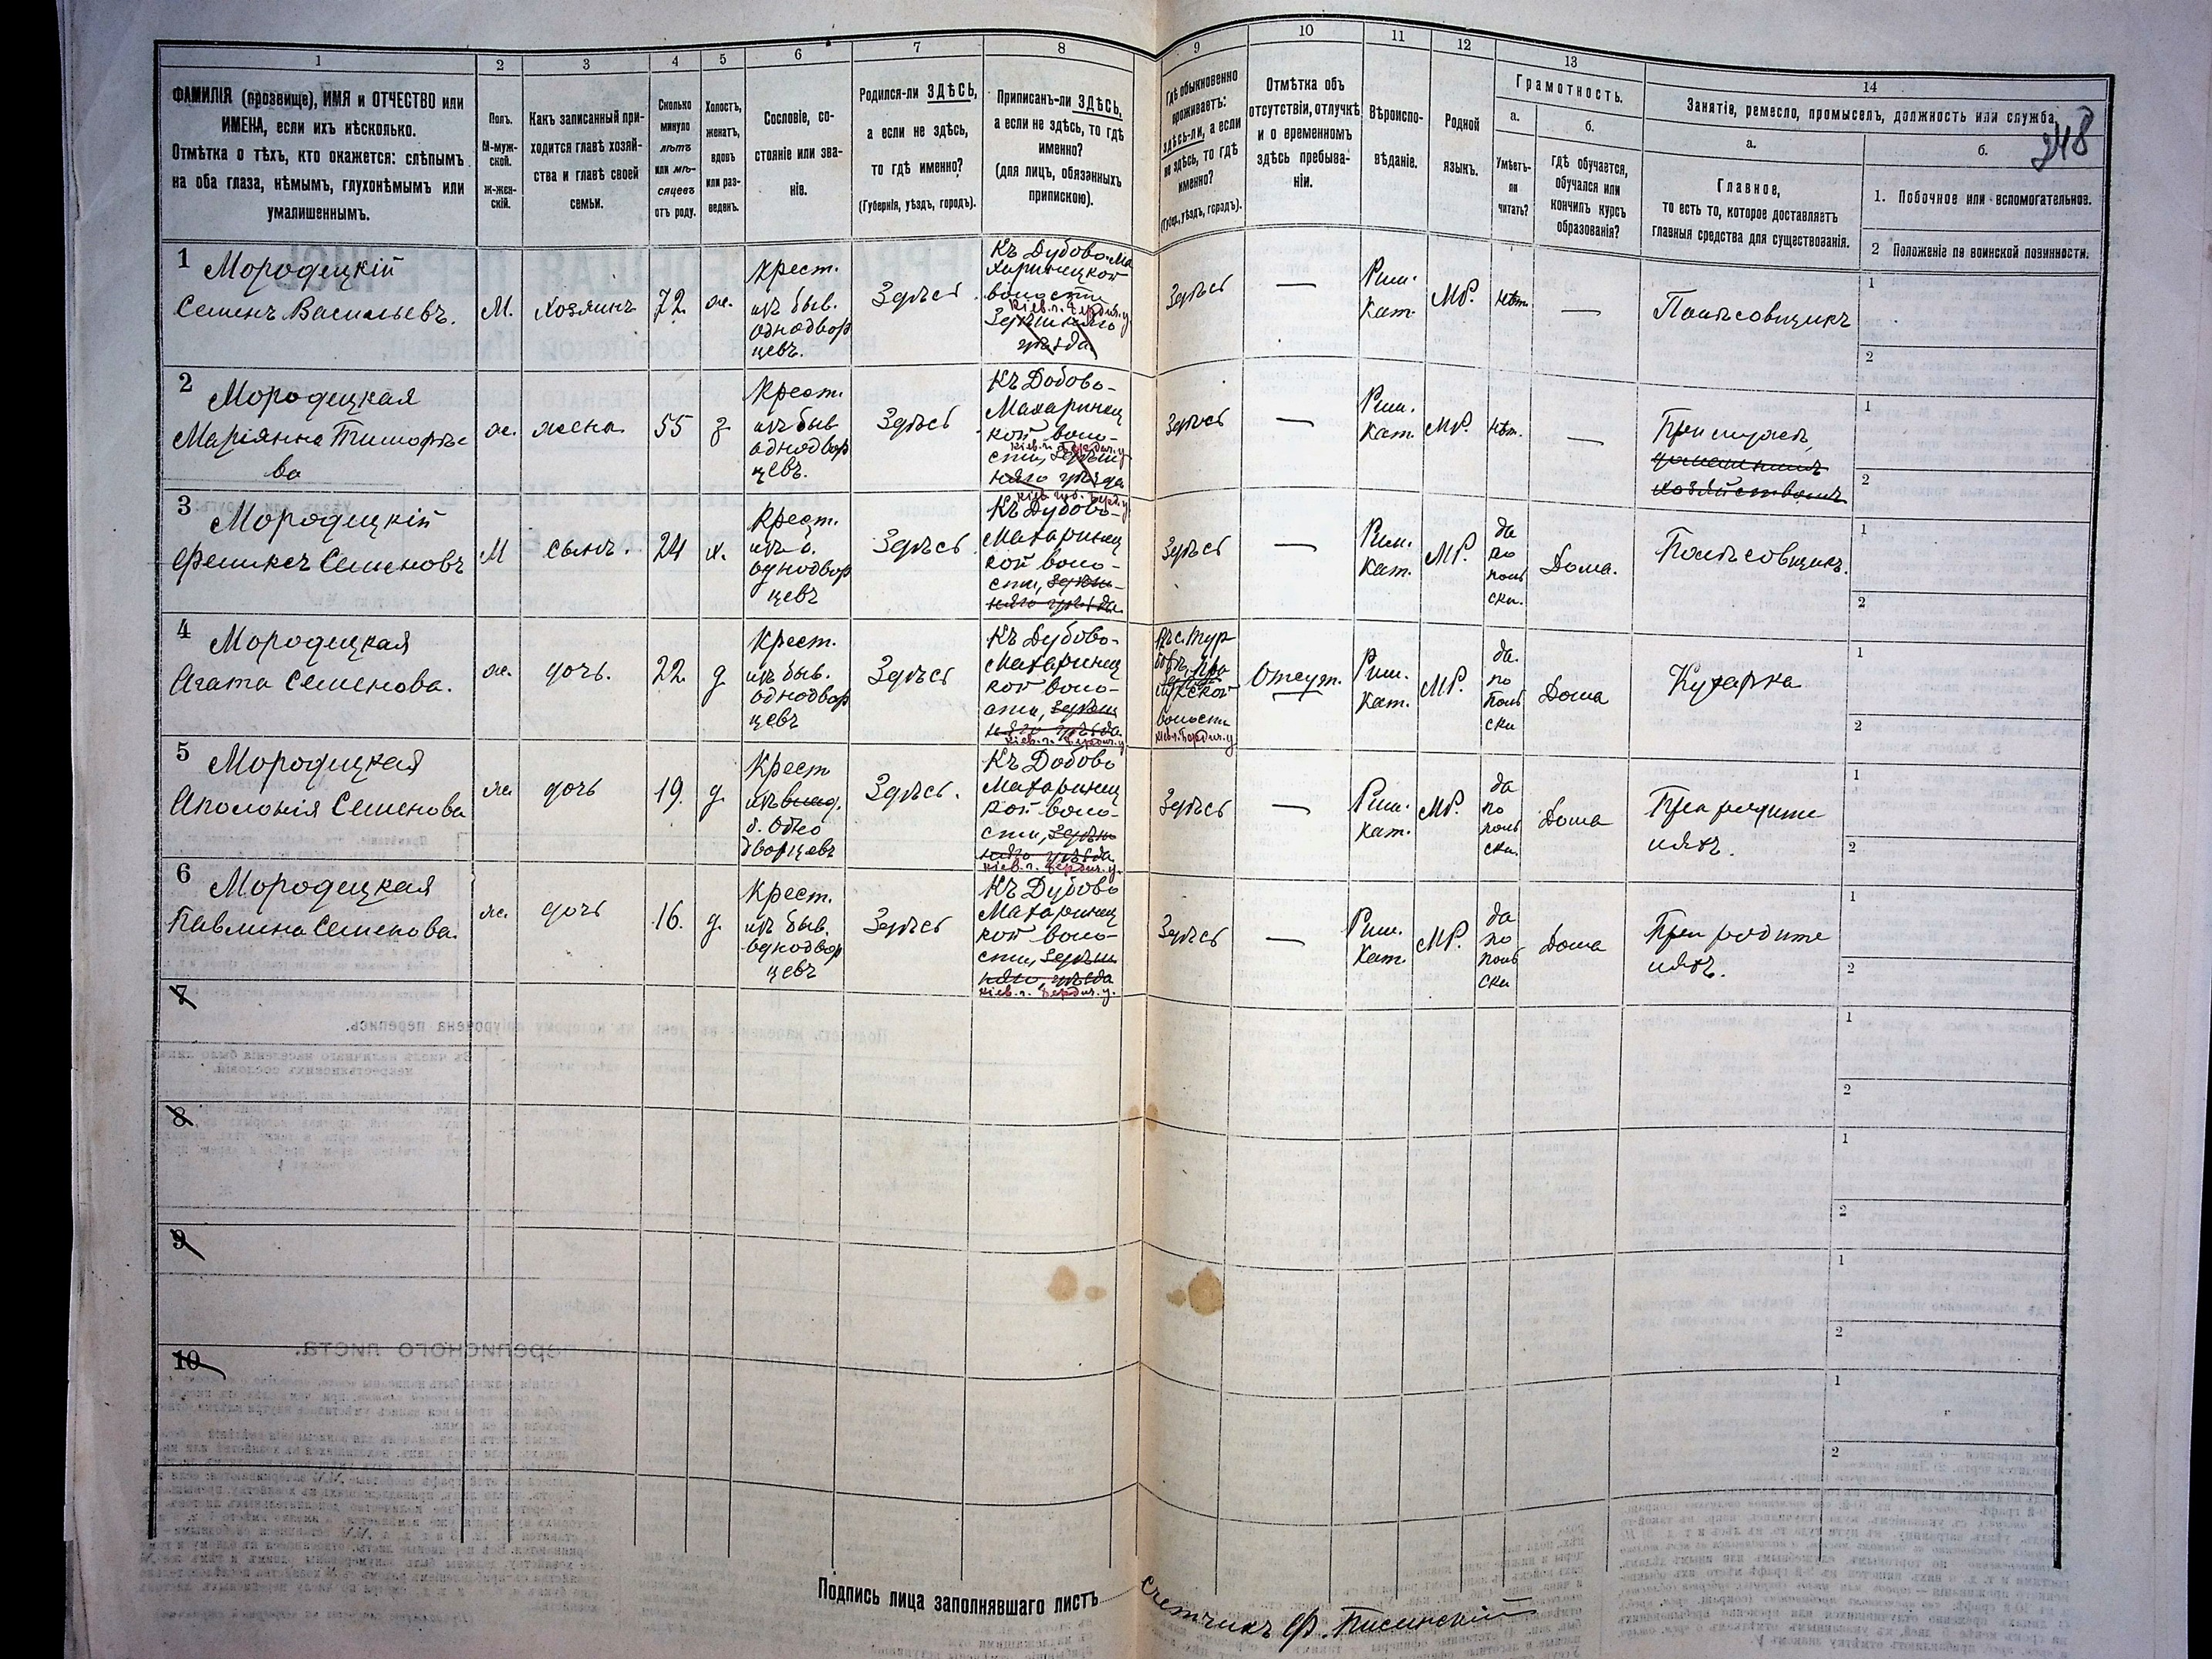 1
2
3
4
5
6
7
8
9
10
11
12
13
14
248
ФАМИЛІЯ (прозвище), ИМЯ и ОТЧЕСТВО или
ИМЕНА, если ихъ нѣсколько.
Отмѣтка о тѣхъ, кто окажется: слѣпымъ
на оба глаза, нѣмымъ, глухонѣмымъ или
умалишеннымъ.
Полъ.
М-муж-
ской.
ж-жен-
скій.
Какъ записанный при-
ходится главѣ хозяй-
ства и главѣ своей
семьи.
Сколько
минуло
лѣтъ
или мѣ-
сяцевъ
отъ роду.
Холостъ,
женатъ,
вдовъ
или раз-
веденъ.
Сословіе, со-
стояніе или зва-
ніе.
Родился-ли ЗДѢСЬ,
а если не здѣсь,
то гдѣ именно?
(Губернія, уѣздъ, городъ).
Приписанъ-ли ЗДѢСЬ,
а если не здѣсь, то гдѣ
именно?
(для лицъ, обязанныхъ
припискою).
Гдѣ обыкновенно
проживаетъ:
здѣсь-ли, а если
не здѣсь, то гдѣ
именно?
(Губер., уѣздъ, городъ).
Отмѣтка объ
отсутствіи, отлучкѣ
и о временномъ
здѣсь пребыва-
ніи.
Вѣроиспо-
вѣданіе.
Родной
языкъ.
Грамотность.
а.
Умѣетъ-
ли
читать?
б.
гдѣ обучается,
обучался или
кончилъ курсъ
образованія?
Занятіе, ремесло, промыселъ, должность или служба.
а.
Главное,
то есть то, которое доставляетъ
главныя средства для существованія.
б.
1. Побочное или вспомогательное.
2 Положеніе по воинской повинности.
1
Мородецкій
Семенъ Васильевъ.
М.
хозяинъ
72.
ж.
Крест.
изъ быв.
однодвор
цевъ.
Здѣсь
Къ Дубово-Ма
харинецкой
волости
Кіев. г. Бердич. у.
Здѣшняго
уѣзда
Здѣсь
—
Рим.
Кат.
МР.
нѣт.
—
Полѣсовщикъ
1
2
2
Мородецкая
Маріянна Тимофѣе
ва
ж.
жена
55
з
Крест.
изъ быв
однодвор
цевъ.
Здѣсь
Къ Добово-
Махаринец
кой воло-
Кіев. г. Бердич. у.
сти, Здѣш
няго уѣзда
Здѣсь
—
Рим.
Кат.
МР.
нѣт.
—
При мужѣ,
домашнимъ
хозяйствомъ
1
2
3
Мородецкій
Феликсъ Семеновъ
М
сынъ.
24
х.
Крест.
изъ б.
однодвор
цевъ
Здѣсь
Кіев. губ. Берд. у.
Къ Дубово-
Махаринец
кой воло-
сти, здѣш-
няго уѣзда
Здѣсь
—
Рим.
Кат.
МР.
да
по
поль
ски.
Дома.
Полѣсовщикъ.
1
2
4
Мородецкая
Агата Семенова.
ж.
дочь.
22.
д
Крест.
изъ быв.
однодвор
цевъ
Здѣсь
Къ Дубово-
Махаринец
кой воло-
сти, здѣш
няго уѣзда
Кіев. г. Бердич. у.
волости
Кіев. г. Бердич. у.
Отсут.
Рим.
Кат.
МР.
да.
по
поль
ски
Дома
Кухарка
1
2
5
Мородецкая
Аполонія Семенова
ж.
дочь
19.
д.
Крест
б. Одно
дворцевъ
Здѣсь.
Къ Добово
Махаринец
кой воло-
сти, здѣш
няго уѣзда
Кіев. г. Бердич. у.
Здѣсь
—
Рим.
Кат.
МР.
да
по
поль
ски.
Дома
При родите
ляхъ.
1
2
6
Мородецкая
Павлина Семенова.
ж.
дочь
16.
д.
Крест.
изъ быв.
однодвор
цевъ
Здѣсь
Къ Дубово
Махаринец
кой воло-
сти, здѣш
няго, уѣзда
Кіев. г. Бердич. у.
Здѣсь
—
Рим.
Кат.
МР.
да
по
поль
ски
Дома
При родите
ляхъ.
1
2
7
1
2
8
1
2
9
1
2
10
1
2
Подпись лица заполнявшаго листъ
Счетчикъ Ф. Писинскій